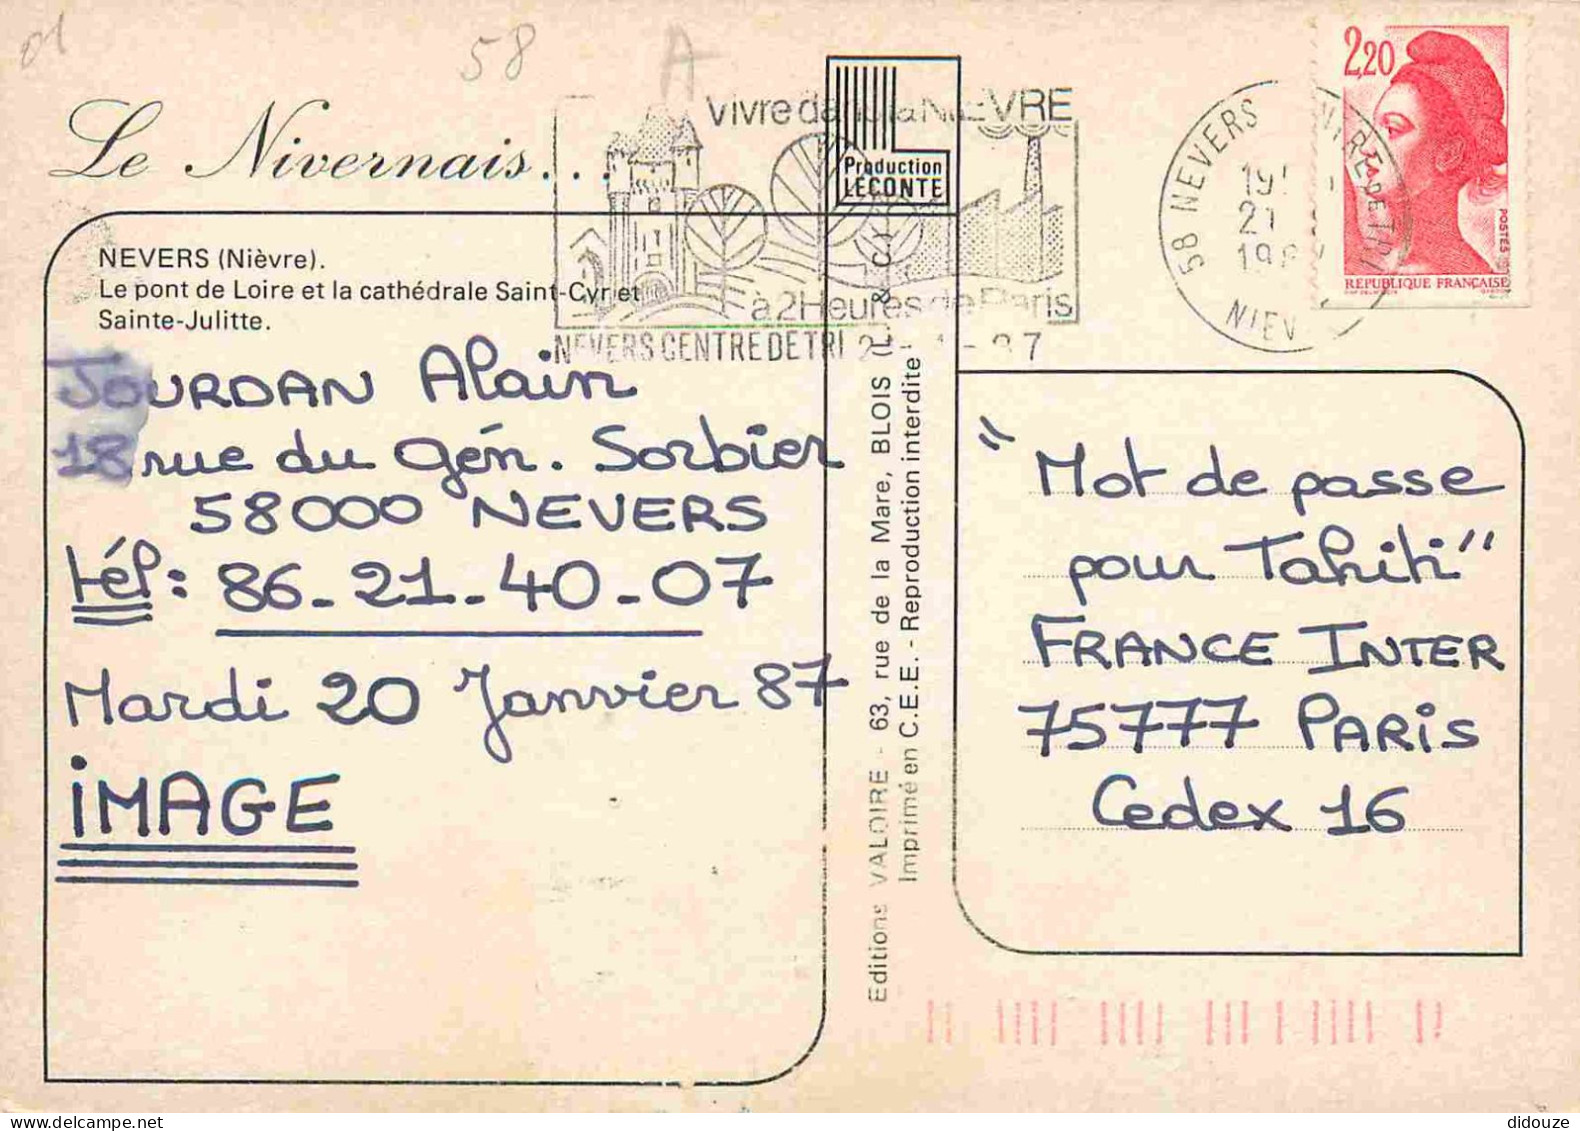 01
58
A
Le Nivernais...
Production
LECONTE
Vivre dans la NIEVRE
à 2 Heures de Paris
NEVERS CENTRE DE TRI
58 NEVERS
21
NIEV
2,20
POSTES
REPUBLIQUE FRANÇAISE
NEVERS (Nièvre).
Le pont de Loire et la cathédrale Saint-Cyr et
Sainte-Julitte.
JOURDAN Alain
18 rue du Gén. Sorbier
58000 NEVERS
tél: 86-21-40-07
Mardi 20 Janvier 87
iMAGE
Editions VALOIRE - 63, rue de la Mare, BLOIS (L. & C.)
Imprimé en C.E.E. - Reproduction interdite
"Mot de passe
pour Tahiti"
FRANCE INTER
75777 PARiS
Cedex 16
didouze